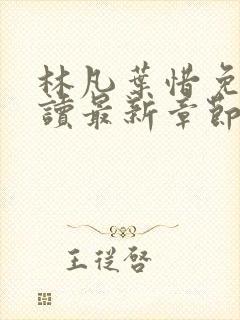 林凡葉惜免
讀最新章節
王從啓